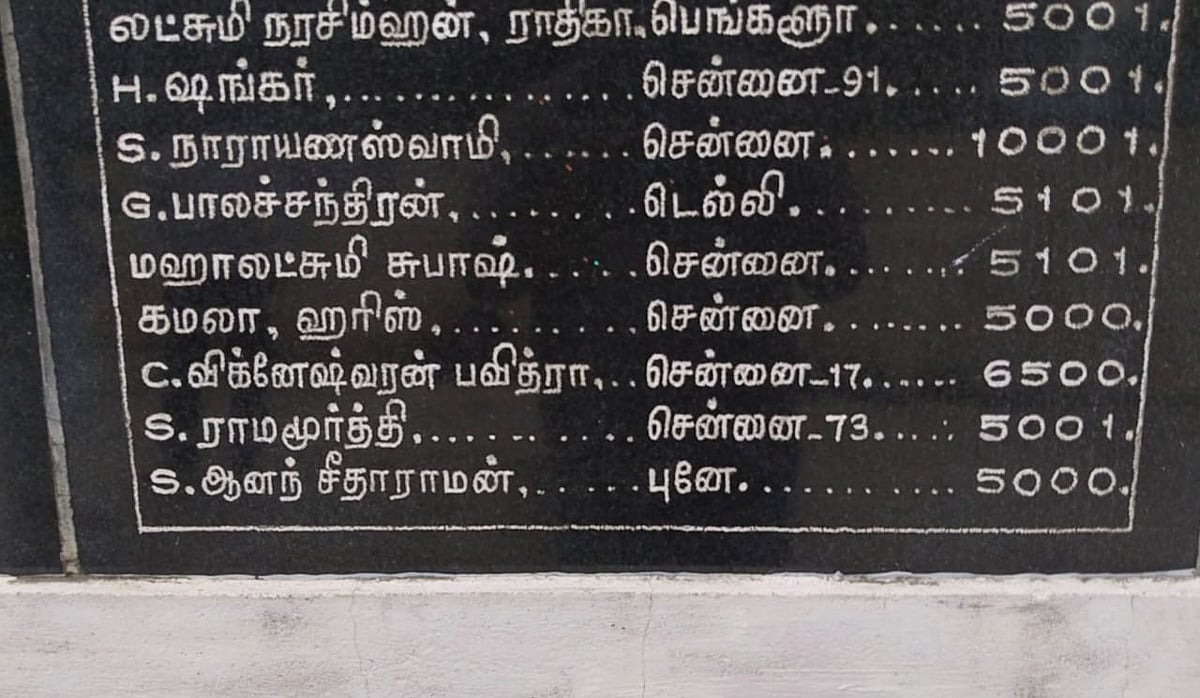 லட்சுமி நரசிம்ஹன், ராதிகா.பெங்களூர்....... 5001.
H.ஷங்கர்,................சென்னை-91...... 5001.
S.நாராயணஸ்வாமி,.......சென்னை.........10001.
G.பாலச்சந்திரன்,.........டெல்லி........... 5101.
மஹாலட்சுமி சுபாஷ்.......சென்னை......... 5101.
கமலா, ஹரிஸ்,...........சென்னை......... 5000.
C.விக்னேஷ்வரன் பவித்ரா,..சென்னை-17...... 6500.
S.ராமமூர்த்தி,............சென்னை-73..... 5001.
S.ஆனந் சீதாராமன்,......புனே............ 5000.